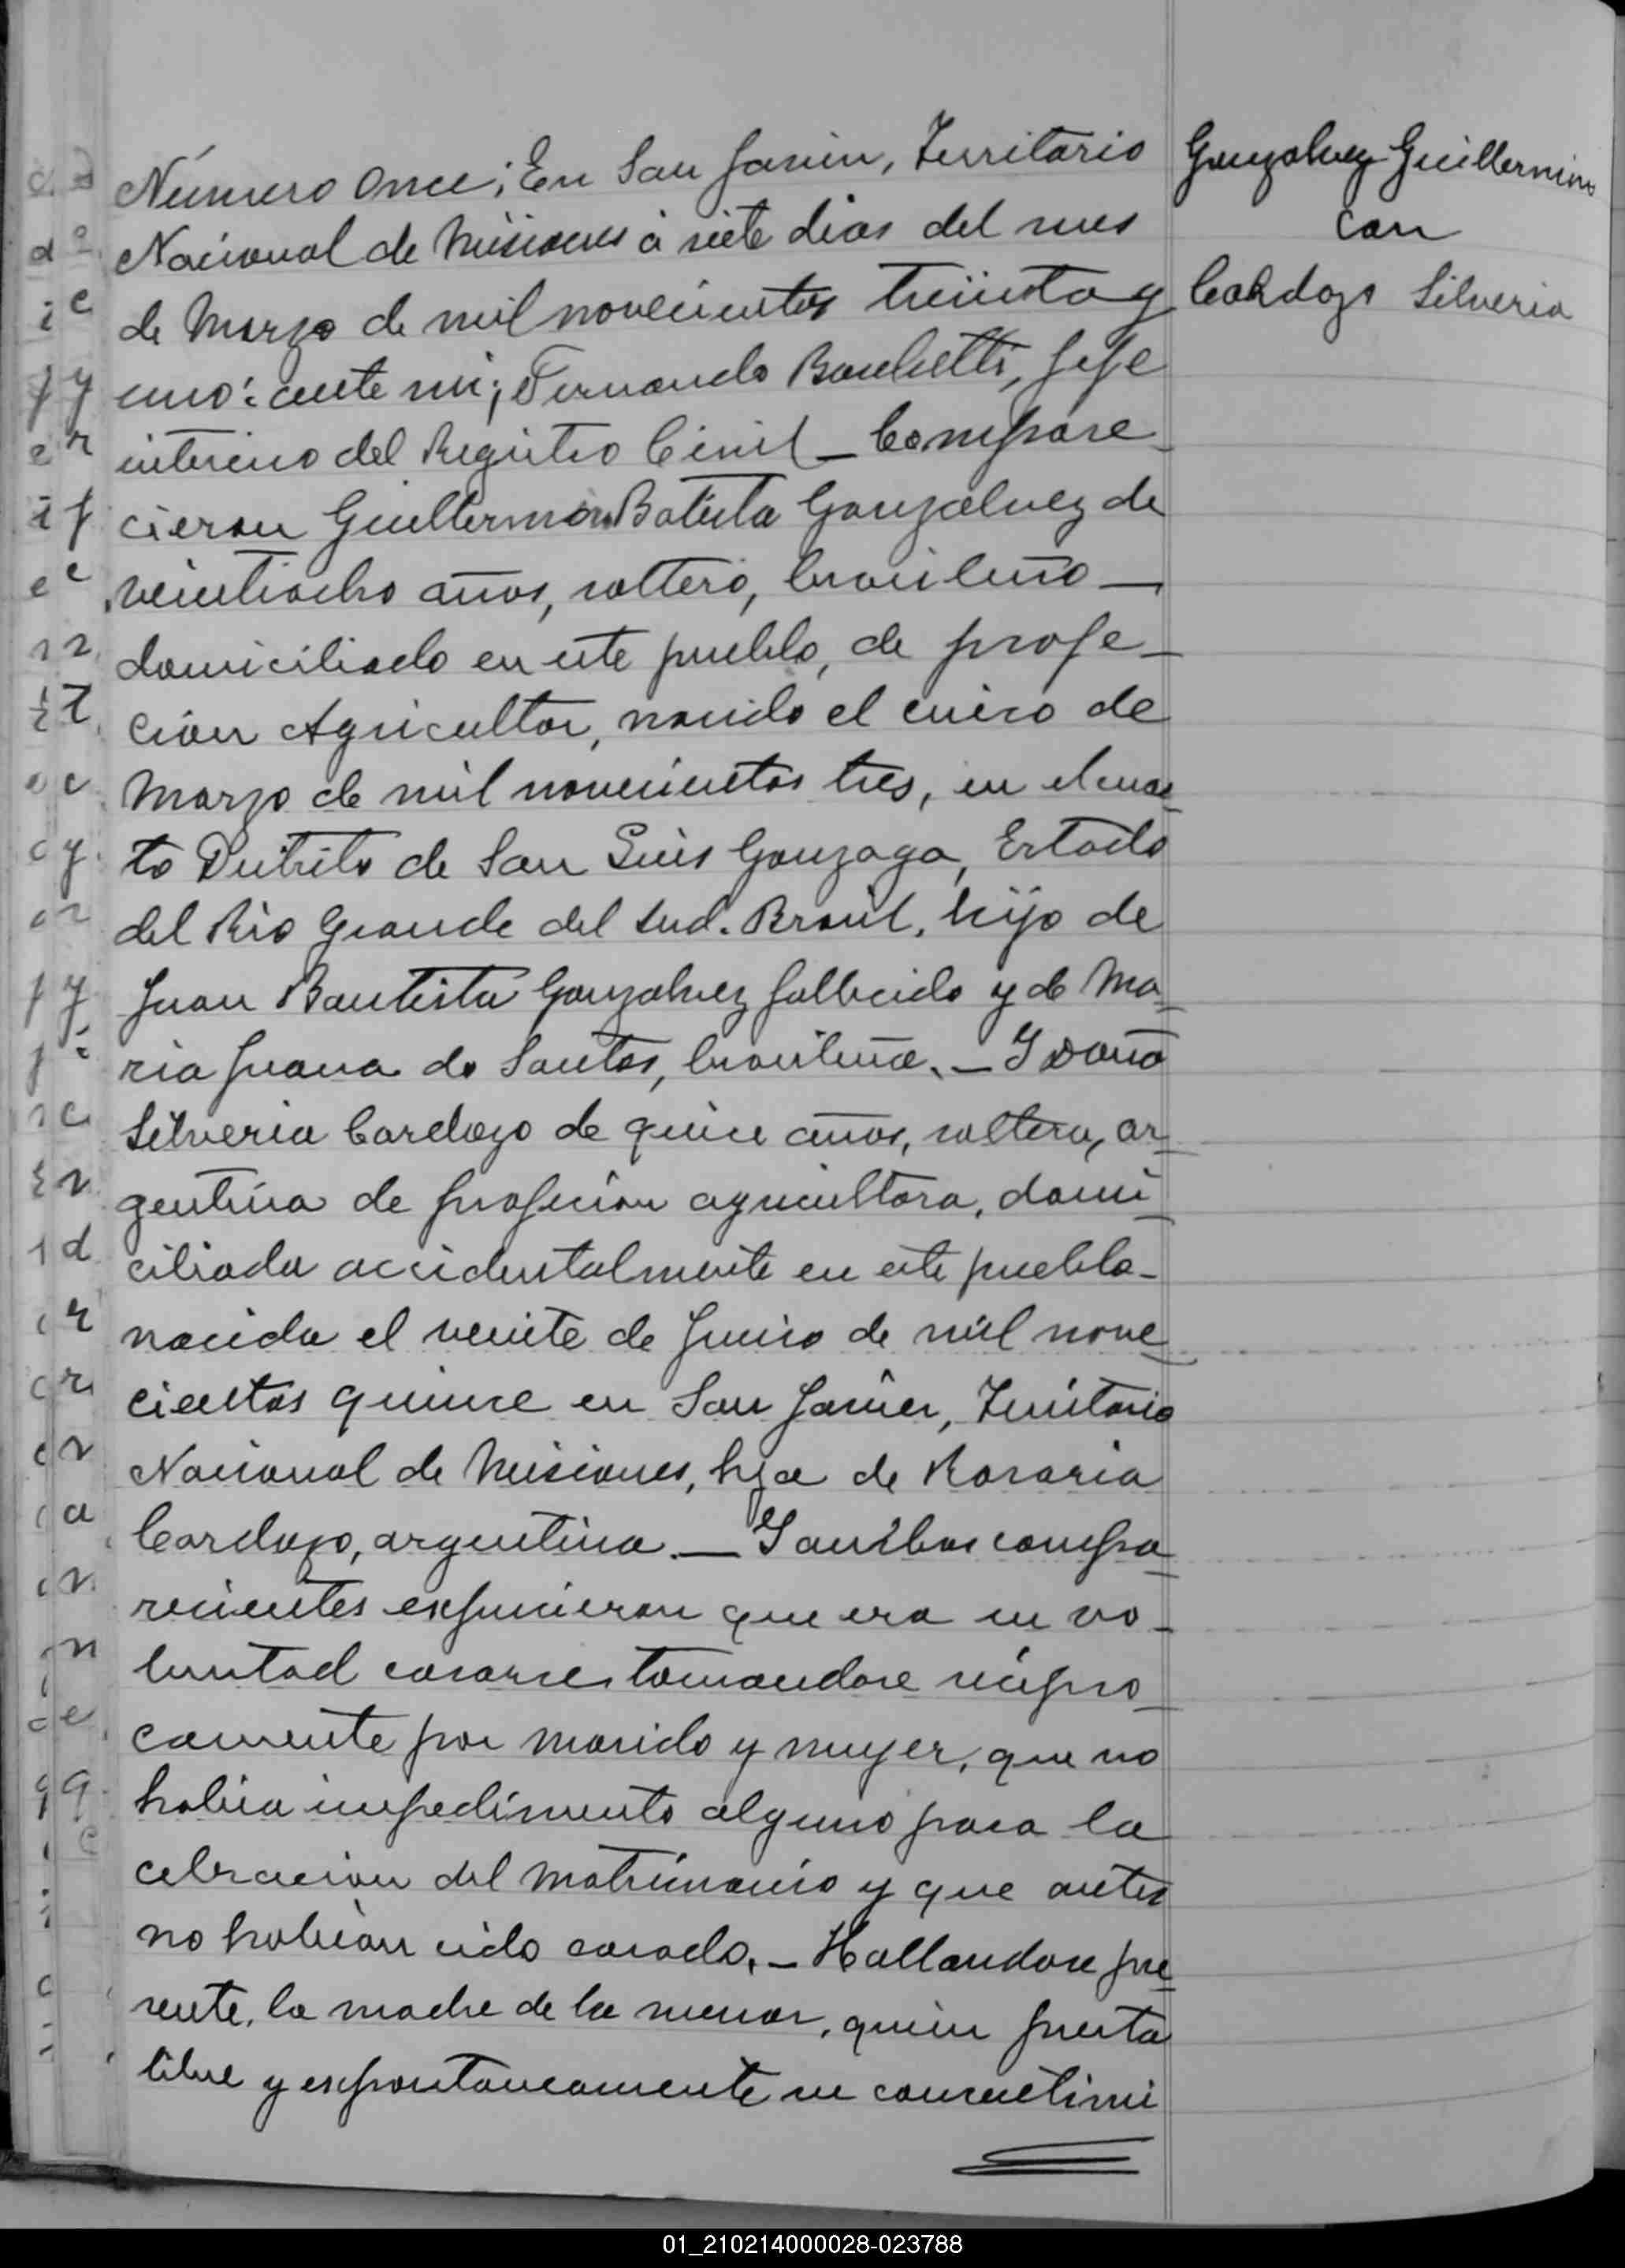 Número Once; En San Javier, Territorio
Nacional de Misiones á siete dias del mes
de Marzo de mil novecientos treinta y
uno: ante mi; Fernando Bonchetti, Jefe
interino del Registro Civil _ Compare_
cieron Guillermino Batista Gonzalvez de
veintiocho años, soltero, brasileño _
domiciliado en este pueblo, de profe_
cion Agricultor, nacido el cinco de
Marzo de mil novecientos tres, en el cuar_
to Distrito de San Luis Gonzaga, Estado
del Rio Grande del Sud. Brasil, hijo de
Juan Bautista Gonzalvez fallecido y de Ma_
ria Juana do Santos, brasileña. _ Y Doña
Silveria Cardozo de quince años, soltera, ar_
gentina de profecion agricultora, domi_
ciliada accidentalmente en este pueblo_
nacida el veinte de Junio de mil nove_
cientos quince en San Javier, Territorio
Nacional de Misiones, hija de Rosaria
Cardozo, argentina. _ Y ambos compa_
recientes expucieron que era su vo_
luntad casarse, tomandose recipro_
camente por marido y mujer, que no
habia impedimento alguno para la
celbracion del matrimonio y que antes
no habian sido casado. _ Hallandose pre_
sente, la madre de la menor, quien presta
libre y expontaneamente su consentimi
Gonzalvez Guillermino
con
Cardozo Silveria
c.
d o
i e
y y
e r
i f
e e
r r
t t
o c
c y
a r
f y
j i
r c
r
d
r
c r
c r
a
r
n
e
q q
e
01_210214000028-023788